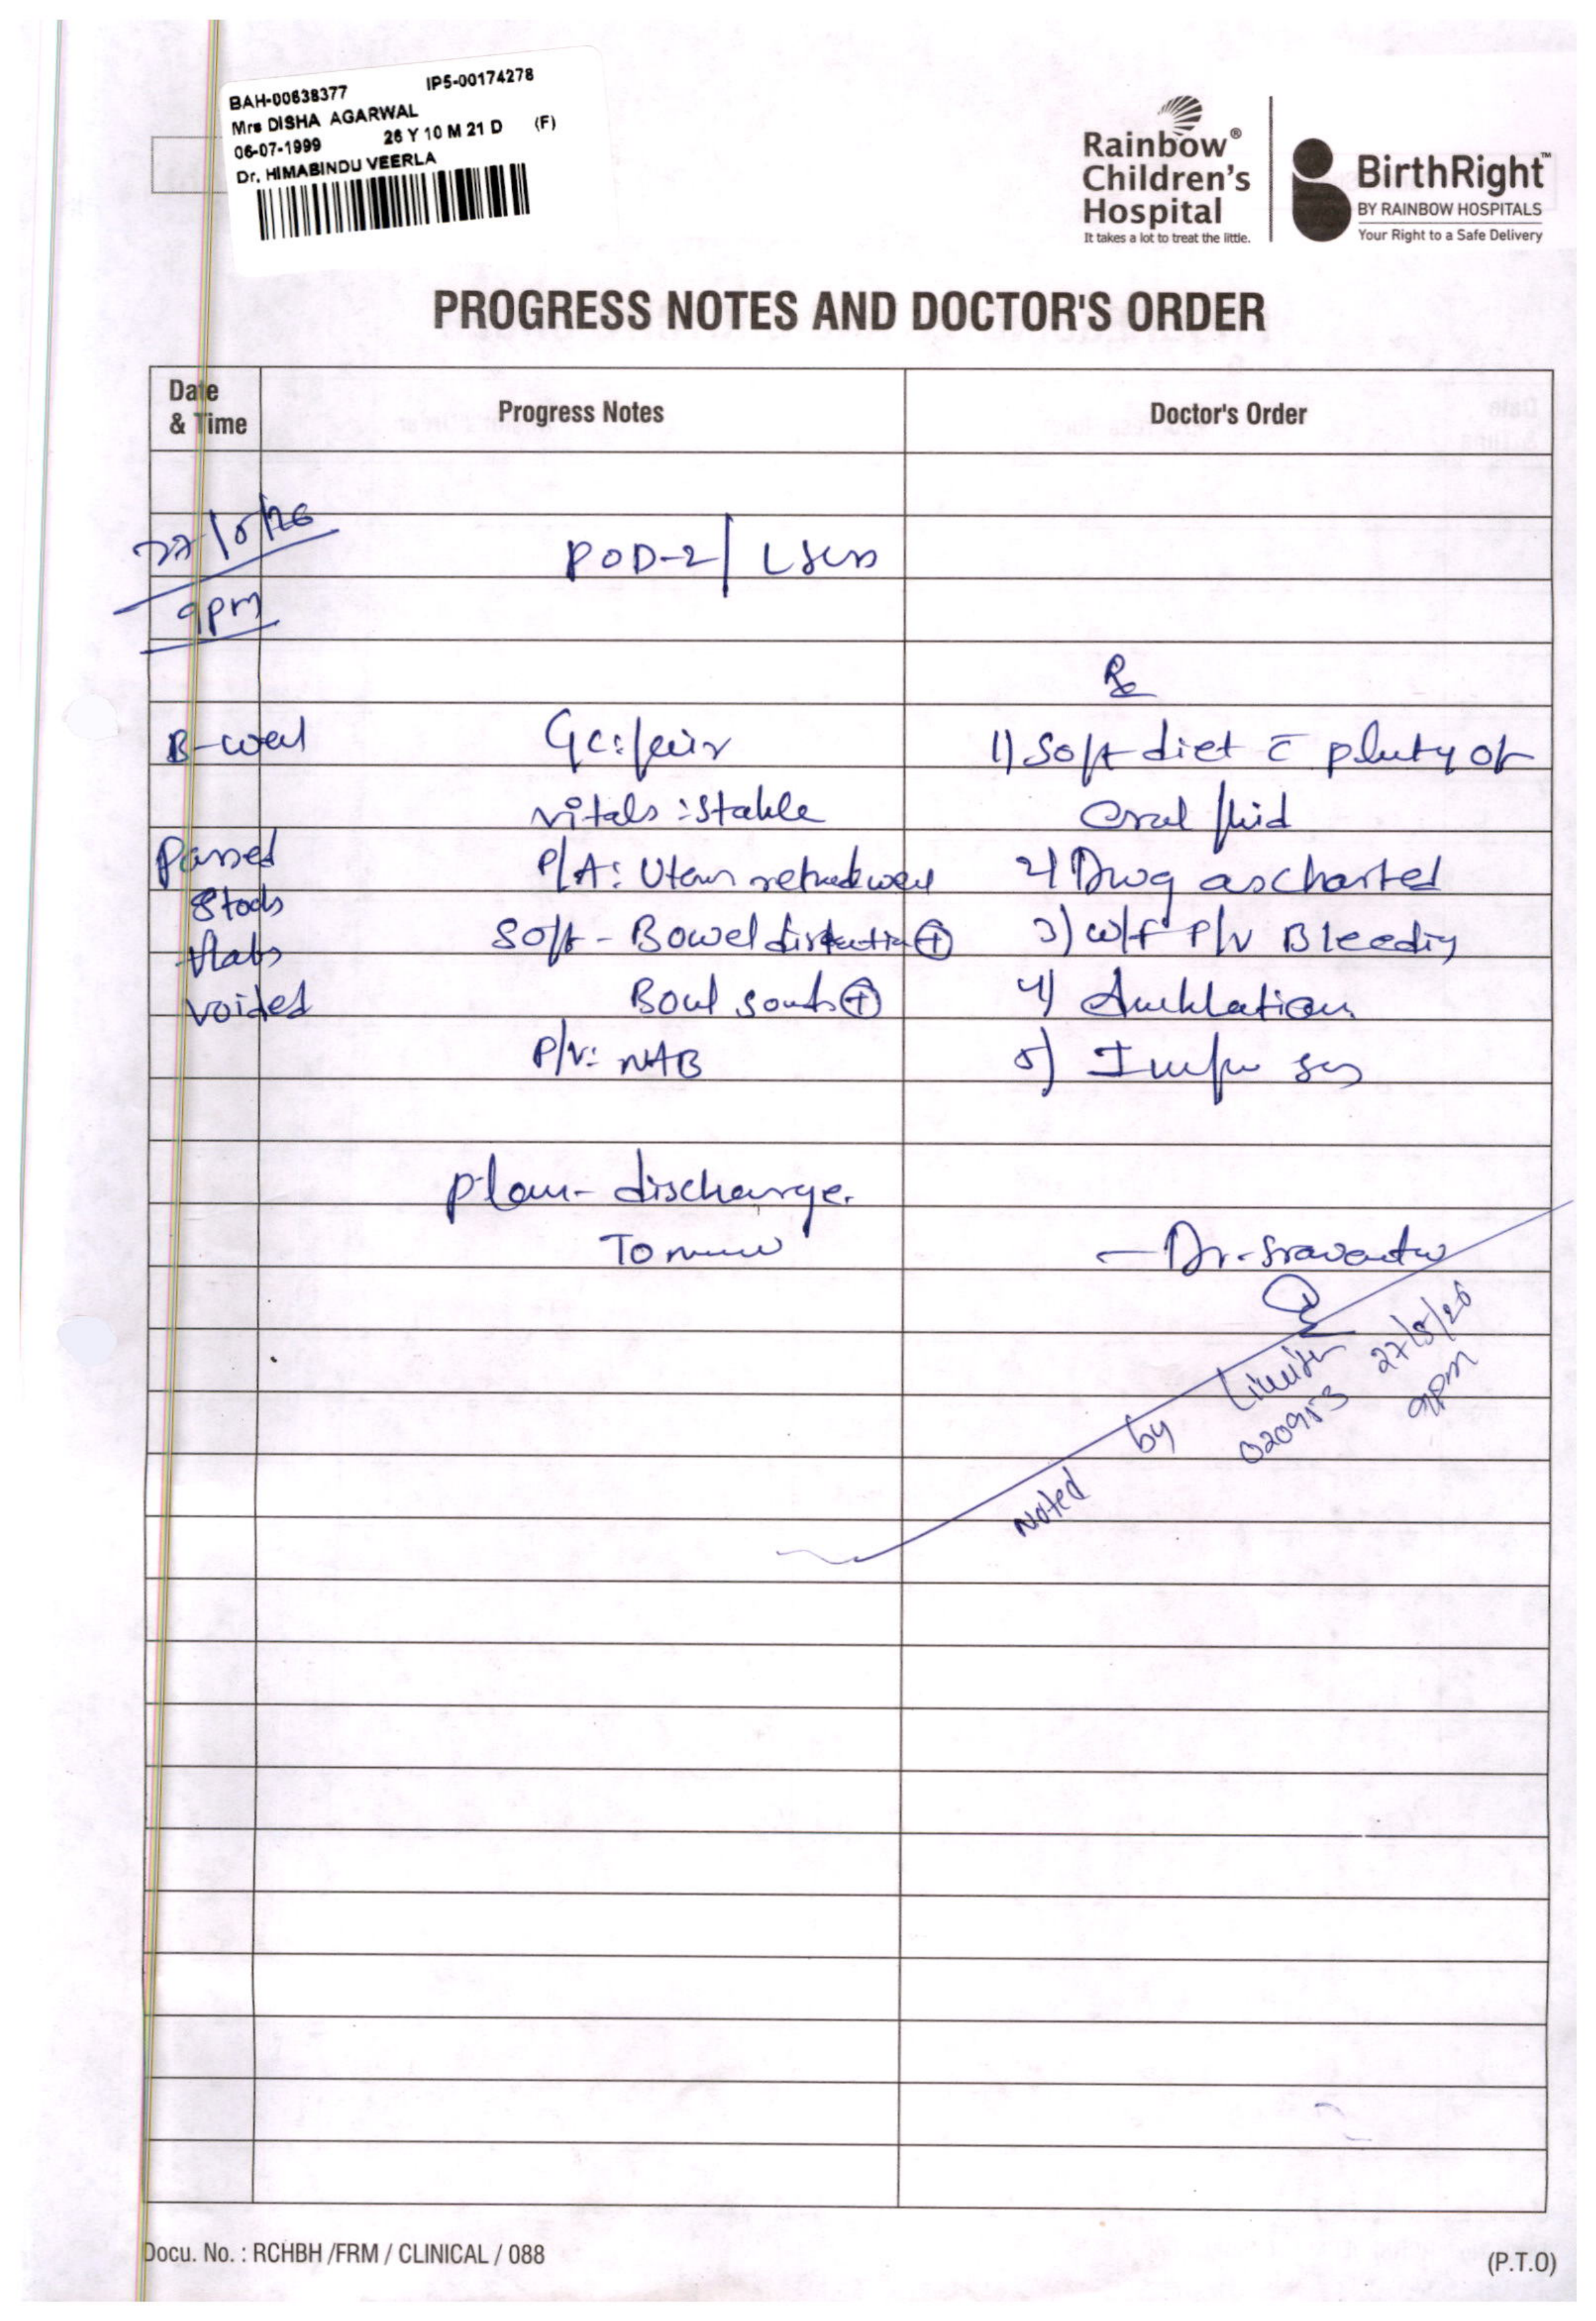 BAH-00638377 IP5-00174278
Mrs DISHA AGARWAL
06-07-1999 26 Y 10 M 21 D (F)
Dr. HIMABINDU VEERLA
Rainbow®
Children's
Hospital
It takes a lot to treat the little.
BirthRight™
BY RAINBOW HOSPITALS
Your Right to a Safe Delivery
PROGRESS NOTES AND DOCTOR'S ORDER
Date
& Time
Progress Notes
Doctor's Order
27/5/26
9pm
POD-2/ LSCS
Rx
B-well
GC: fair
1) Soft diet c̄ plenty of
vitals : Stable
Oral fluid
Passed
P/A: Uterus retracted well
2) Drug as charted
Stools
Soft - Bowel distention ⊕
3) W/F P/V Bleeding
flatus
voided
Bowel sounds ⊕
4) Ambulation
P/V: NAB
5) Inform sos
Plan - discharge.
Tomorrow
- Dr. Sravanthi
Noted by 020953 27/5/26
9pm
Docu. No. : RCHBH /FRM / CLINICAL / 088
(P.T.O)